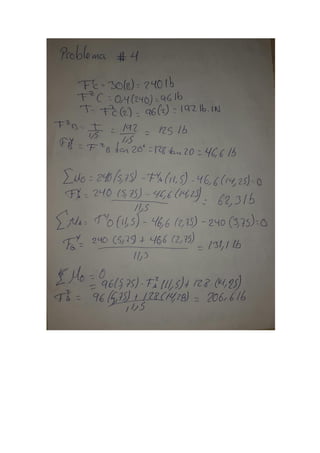 Problema #4
F'c = 30(8) = 240 lb
F²C = 0,4(240) = 96 lb
T = F²C(2) = 96(2) = 192 lb.IN
F²B = T/1,5 = 192/1,5 = 128 lb
F^yB = F²B tan 20° = 128 tan 20 = 46,6 lb
∑M0 = 240(5,75) - F^yA(11,5) - 46,6(14,25) = 0
F^yA = 240(5,75) - 46,6(14,25)/11,5 = 62,3 lb
∑MA = F^yO(11,5) - 46,6(2,75) - 240(5,75) = 0
F^yO = 240(5,75) + 46,6(2,75)/11,5 = 131,1 lb
∑MO = 0
= 96(5,75) - F²A(11,5) + 128(14,25)
F²A = 96(5,75) + 128(14,25)/11,5 = 206,6 lb